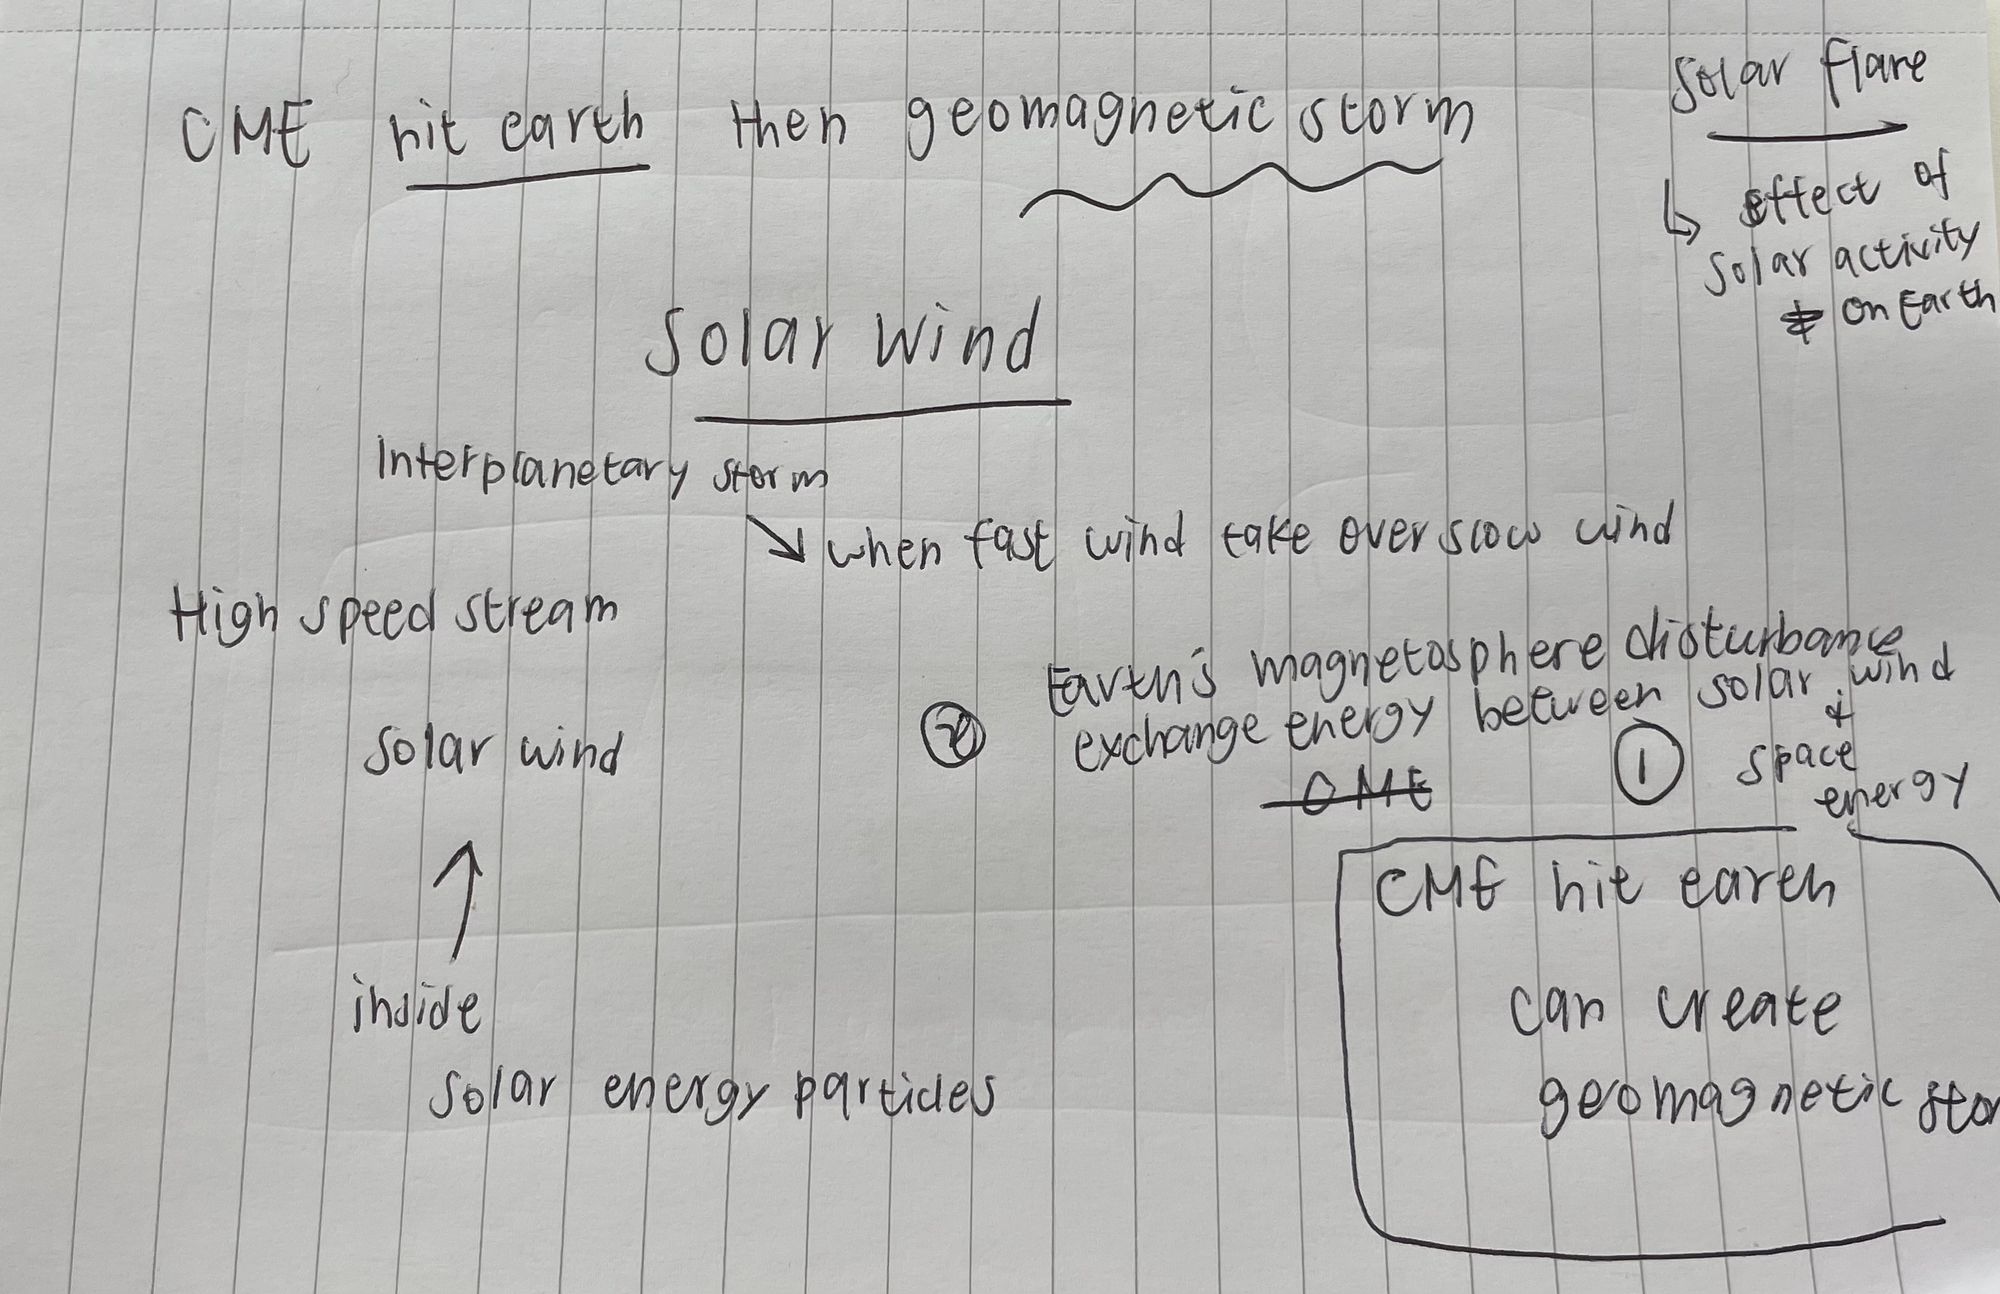 CME hit earth then geomagnetic storm
Solar flare
↳ effect of
solar activity
on Earth
Solar wind
Interplanetary storm
↘ when fast wind take over slow wind
High speed stream
Earth's magnetosphere disturbance
② exchange energy between solar wind
&
① space
energy
CME
solar wind
↑
inside
solar energy particles
CME hit earth
can create
geomagnetic stor